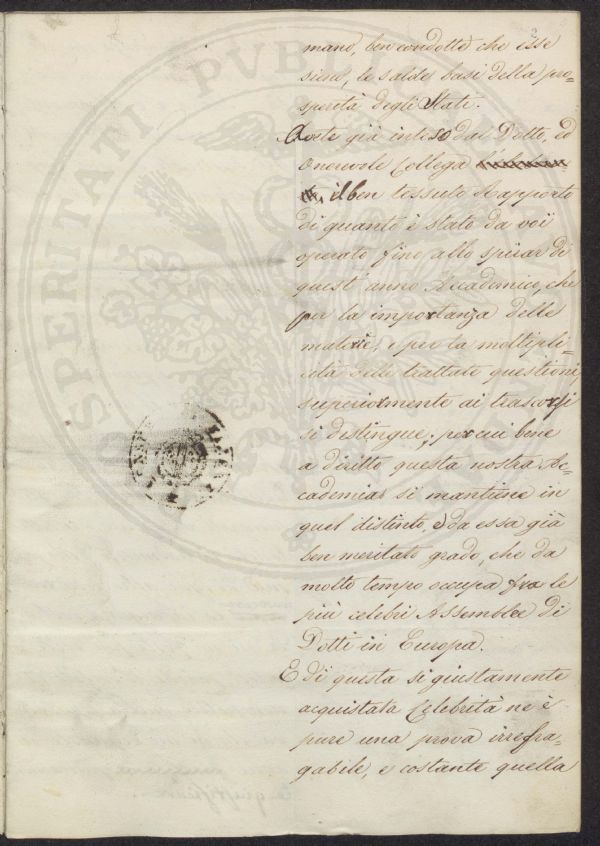 2
mano, ben condotte che esse
sieno, le salde basi della pro=
sperità degli Stati.
Avete già inteso dal Dotto, ed
Onorevole Collega
il ben tessuto Rapporto
di quanto è stato da voi
operato fino allo spirar di
quest'anno Accademico, che
per la importanza delle
materie, e per la moltipli=
cità delle trattate questioni,
superiormente ai trascorsi
si distingue; per cui bene
a diritto questa nostra Ac=
cademia si mantiene in
quel distinto, e da essa già
ben meritato grado, che da
molto tempo occupa fra le
più celebri Assemblee di
Dotti in Europa.
E di questa sì giustamente
acquistata Celebrità ne è
pure una prova irrefra=
gabile, e costante quella
PROSPERITATI PUBLICAE